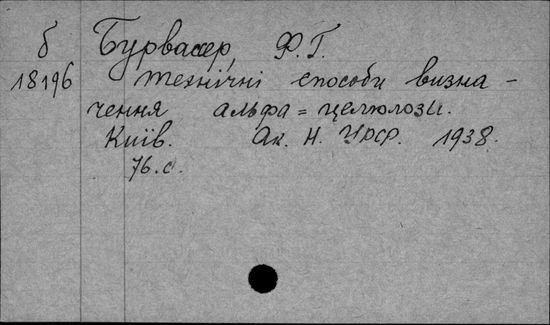 б Бурвасер, Ф.Г.
18196 технічні способи визна-
чення альфа=целюлози.
Київ. Ак. Н. Урср. 1938.
76.с.